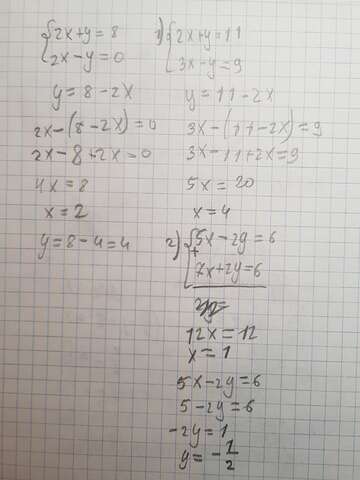 2x+y=8
2x-y=0
y=8-2x
2x-(8-2x)=0
2x-8+2x=0
4x=8
x=2
y=8-4=4
2x+y=11
3x-y=9
y=11-2x
3x-(11-2x)=9
3x-11+2x=9
5x=20
x=4
2) 5x-2y=6
+
7x+2y=6
12x=12
x=1
5x-2y=6
5-2y=6
-2y=1
y=-1/2